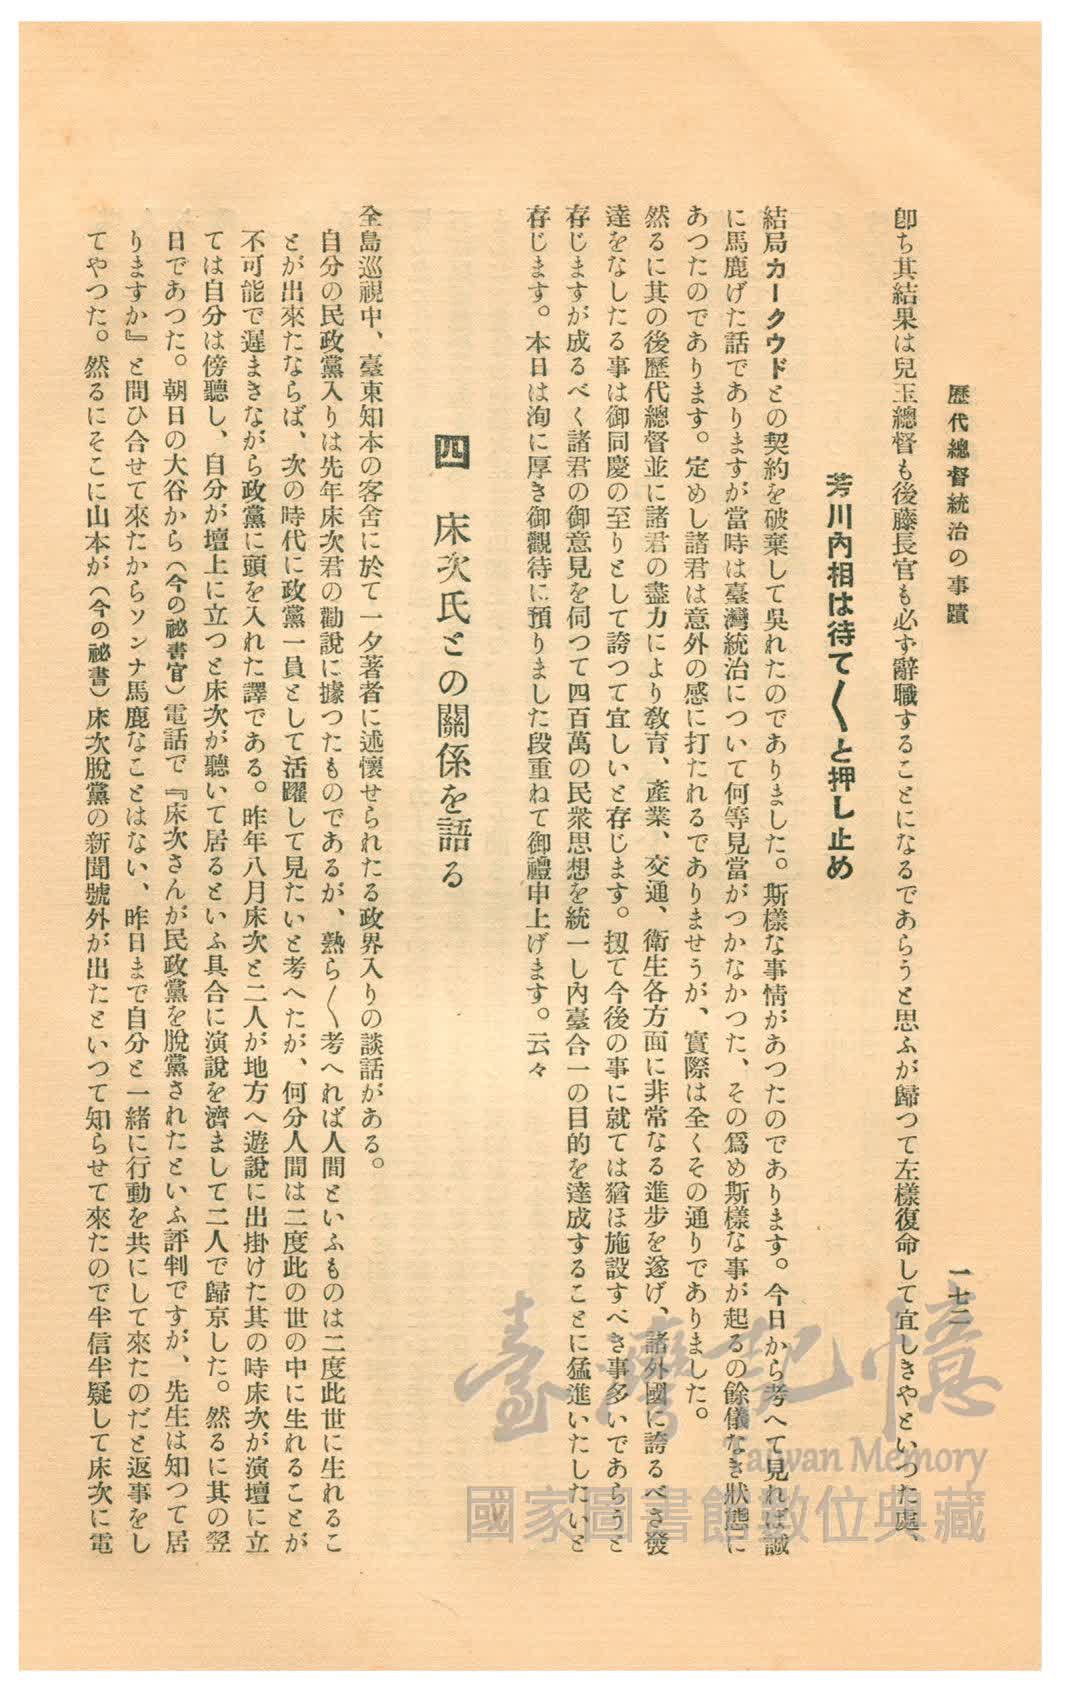 歷代總督統治の事蹟
一七二
卽ち其結果は兒玉總督も後藤長官も必ず辭職することになるであらうと思ふが歸つて左樣復命して宜しきやといつた處、
芳川內相は待て〱と押し止め
結局カークウドとの契約を破棄して吳れたのでありました。斯樣な事情があつたのであります。今日から考へて見れば誠
に馬鹿げた話でありますが當時は臺灣統治について何等見當がつかなかつた、その爲め斯樣な事が起るの餘儀なき狀態に
あつたのであります。定めし諸君は意外の感に打たれるでありませうが、實際は全くその通りでありました。
然るに其の後歷代總督並に諸君の盡力により敎育、產業、交通、衞生各方面に非常なる進步を遂げ、諸外國に誇るべき發
達をなしたる事は御同慶の至りとして誇つて宜しいと存じます。扨て今後の事に就ては猶ほ施設すべき事多いであらうと
存じますが成るべく諸君の御意見を伺つて四百萬の民衆思想を統一し內臺合一の目的を達成することに猛進いたしたいと
存じます。本日は洵に厚き御觀待に預りました段重ねて御禮申上げます。云々
四 床次氏との關係を語る
全島巡視中、臺東知本の客舍に於て一夕著者に述懷せられたる政界入りの談話がある。
自分の民政黨入りは先年床次君の勸說に據つたものであるが、熟ら〱考へれば人間といふものは二度此世に生れるこ
とが出來たならば、次の時代に政黨一員として活躍して見たいと考へたが、何分人間は二度此の世の中に生れることが
不可能で遲まきながら政黨に頭を入れた譯である。昨年八月床次と二人が地方へ遊說に出掛けた其の時床次が演壇に立
ては自分は傍聽し、自分が壇上に立つと床次が聽いて居るといふ具合に演說を濟まして二人で歸京した。然るに其の翌
日であつた。朝日の大谷から（今の祕書官）電話で『床次さんが民政黨を脫黨されたといふ評判ですが、先生は知つて居
りますか』と問ひ合せて來たからソンナ馬鹿なことはない、昨日まで自分と一緖に行動を共にして來たのだと返事をし
てやつた。然るにそこに山本が（今の祕書）床次脫黨の新聞號外が出たといつて知らせて來たので半信半疑して床次に電
臺灣記憶
Taiwan Memory
國家圖書館數位典藏